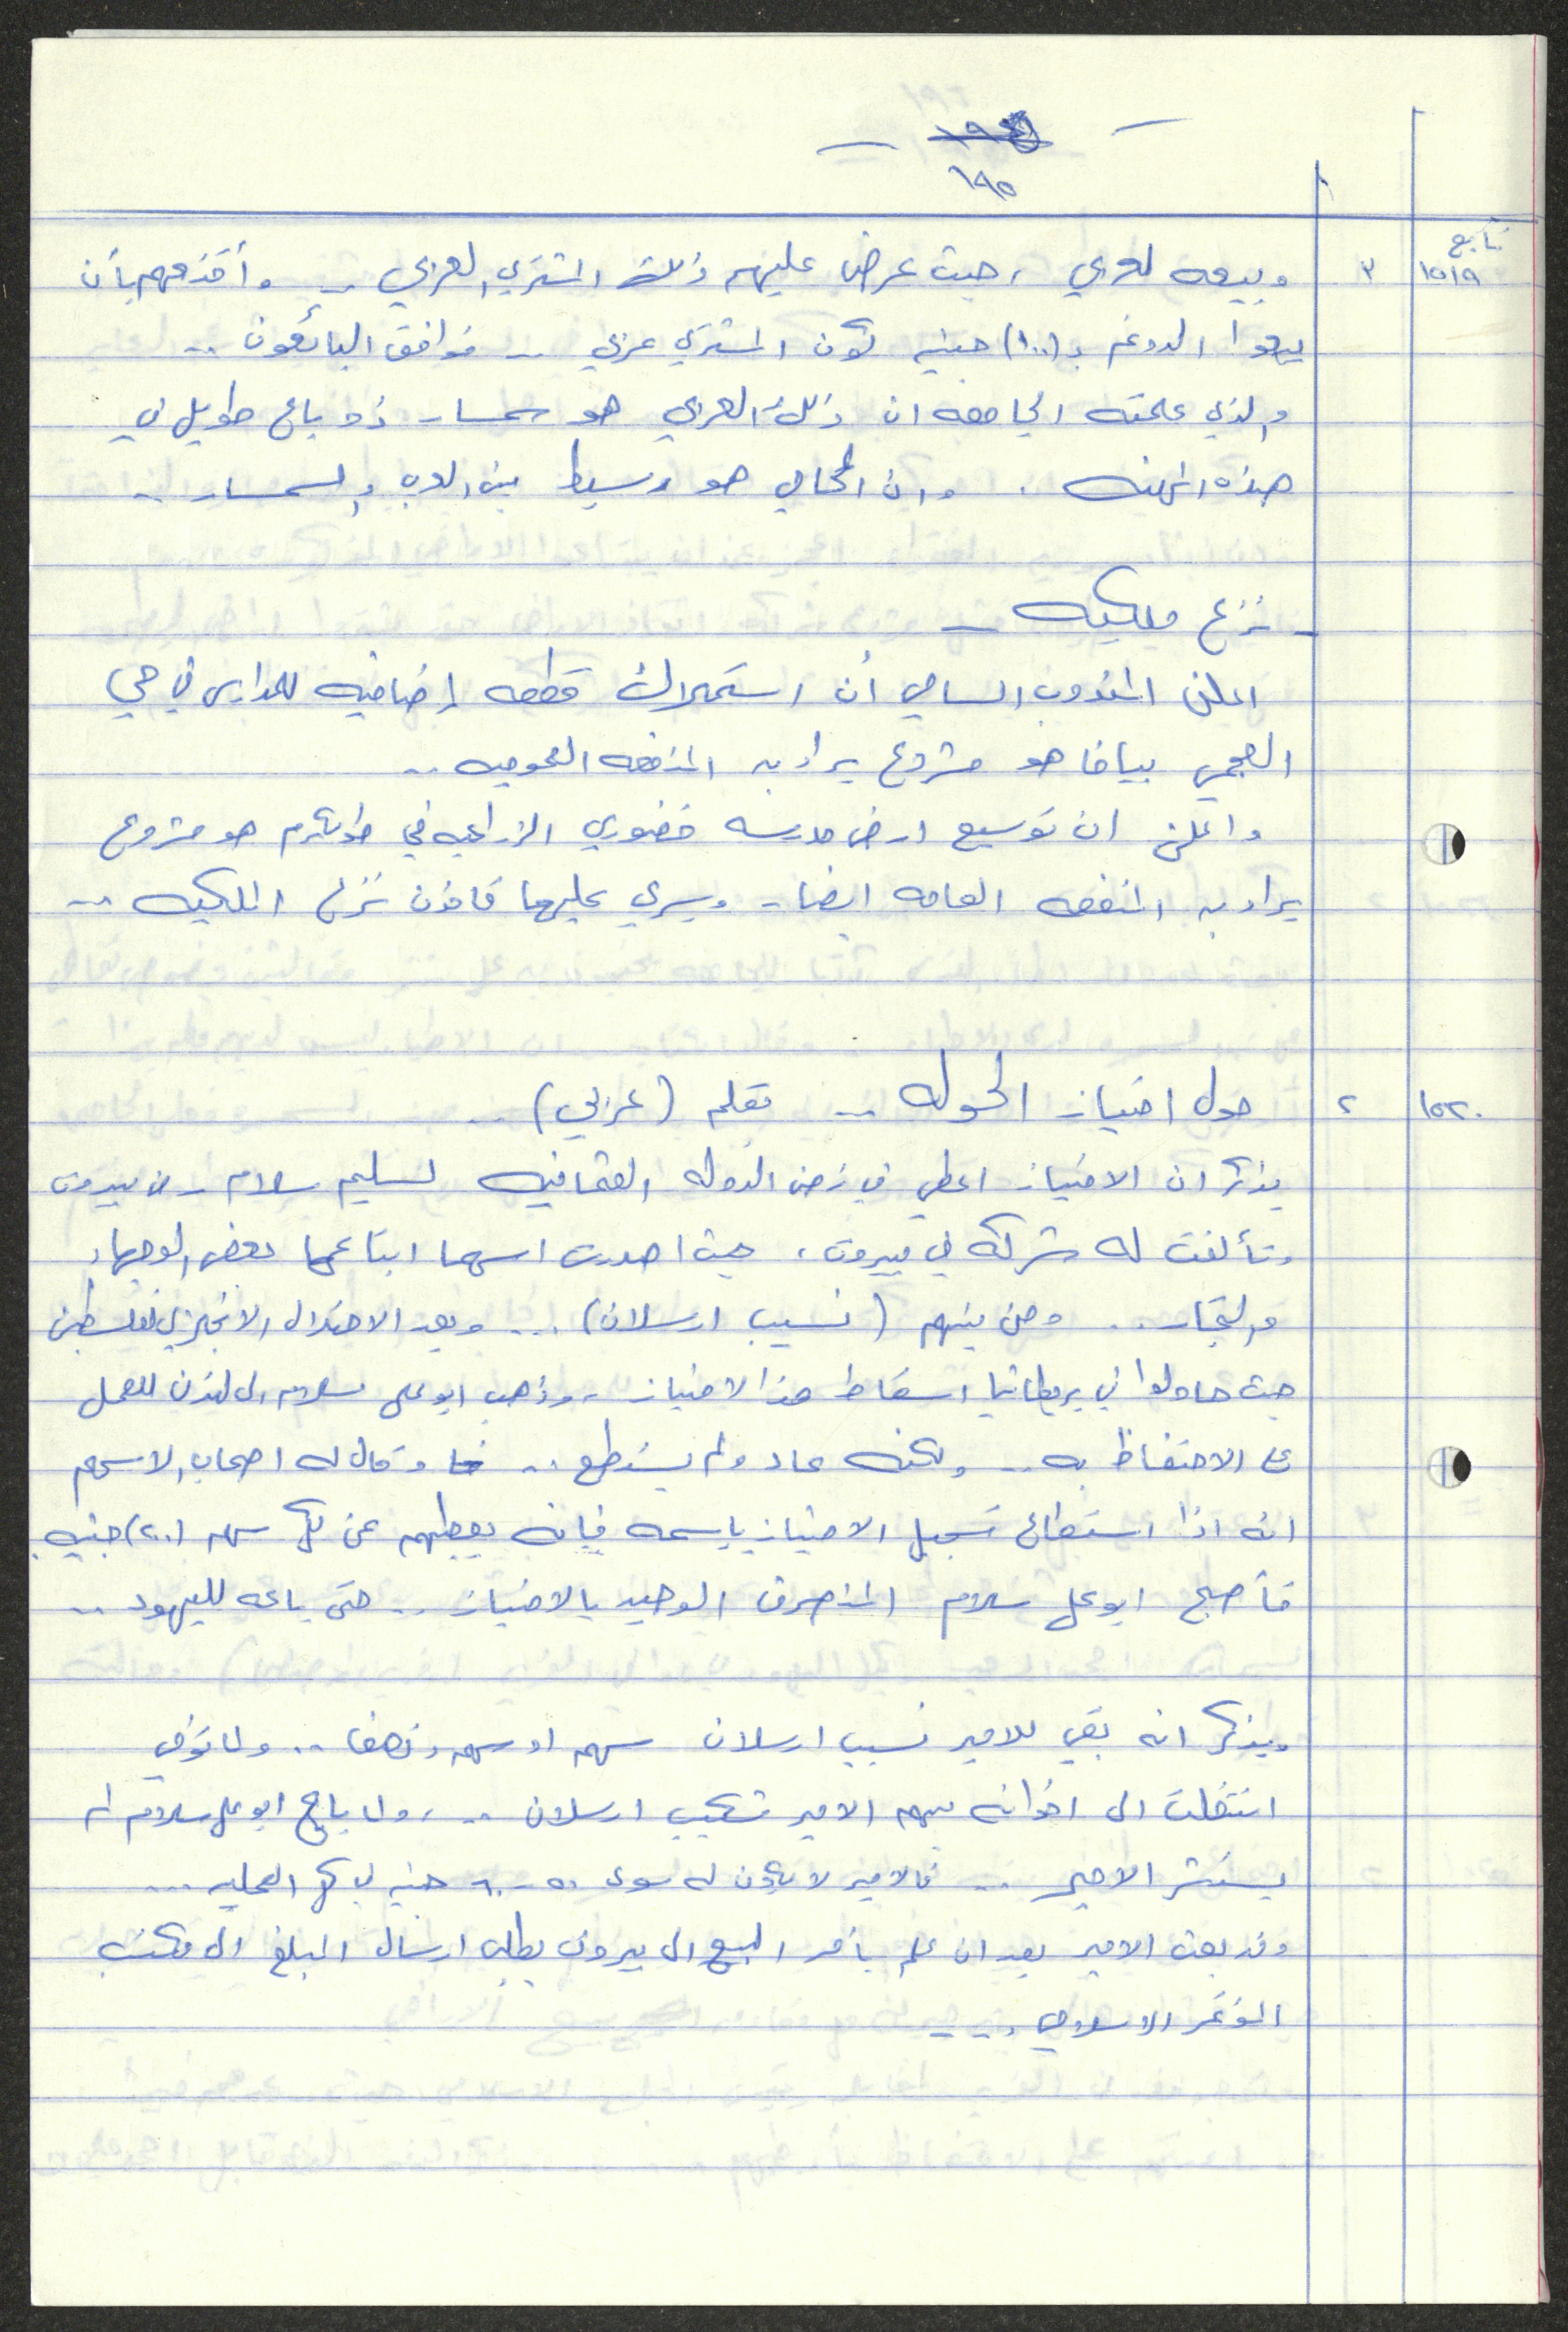 ١٩٥
تابع
١٥١٩ ٣ وبيعه لعربي ، حيث عرض عليهم ذلك المشتري العربي .. وأقنعهم بأن
يبيعوا الدونم بـ (١٠٠) جنيه لكون المشتري عربي .. فوافق البائعون ..
والذي علمته الجامعه ان ذلك العربي هو سمسار ذو باع طويل في
هذه المهنه . وان المحامي هو وسيط بين والسمسار ..
- نزع ملكيه -
اعلن المندوب السامي أن استملاك قطعه إضافيه للمدارس في حي
العجمي بيافا هو مشروع يراد به المنفعه العموميه ..
واعلن ان توسيع ارض مدرسه خضوري الزراعيه في طولكرم هو مشروع
يراد به المنفعه العامه ايضا .. ويسري عليها قانون نزع الملكيه ..
١٥٢٠ ٢ حول امتياز الحوله .. بقلم (عربي) ..
يذكر ان الامتياز اعطي في زمن الدوله العثمانيه لسليم سلام .. من بيروت
وتألفت له شركه في بيروت ، حيث اصدرت اسهما ابتاعها بعض الوجهاء
والتجار .. ومن بينهم (نسيب ارسلان) ... وبعد الاحتلال الانجليزي لفلسطين
حيث حاولوا في بريطانيا اسقاط هذا الامتياز .. وذهب ابو علي سلام الى لندن للعمل
على الاحتفاظ به .. ولكنه عاد ولم يستطع .. وقال له اصحاب الاسهم
انه اذا استطاع تسجيل الامتياز باسمه فإنه يعطيهم عن كل سهم (٢٠٠) جنيه .
فأصبح ابو علي سلام المتصرف الوحيد بالامتياز .. حتى باعه لليهود ..
ويذكر انه بقي للامير نسيب ارسلان سهم او سهم ونصف .. ولما توفي
انتقلت الى اخوانه منهم الامير شكيب ارسلان .. ، ولما باع ابو علي سلام لم
يستشر الامير .. فالامير لا يكون له سوى ٥٠ - ٦٠ جنيه بكل العمليه ...
وقد بعث الامير بعد ان علم بأمر البيع الى بيروت يطلب ارسال المبلغ الى مكتب
المؤتمر الاسلامي .